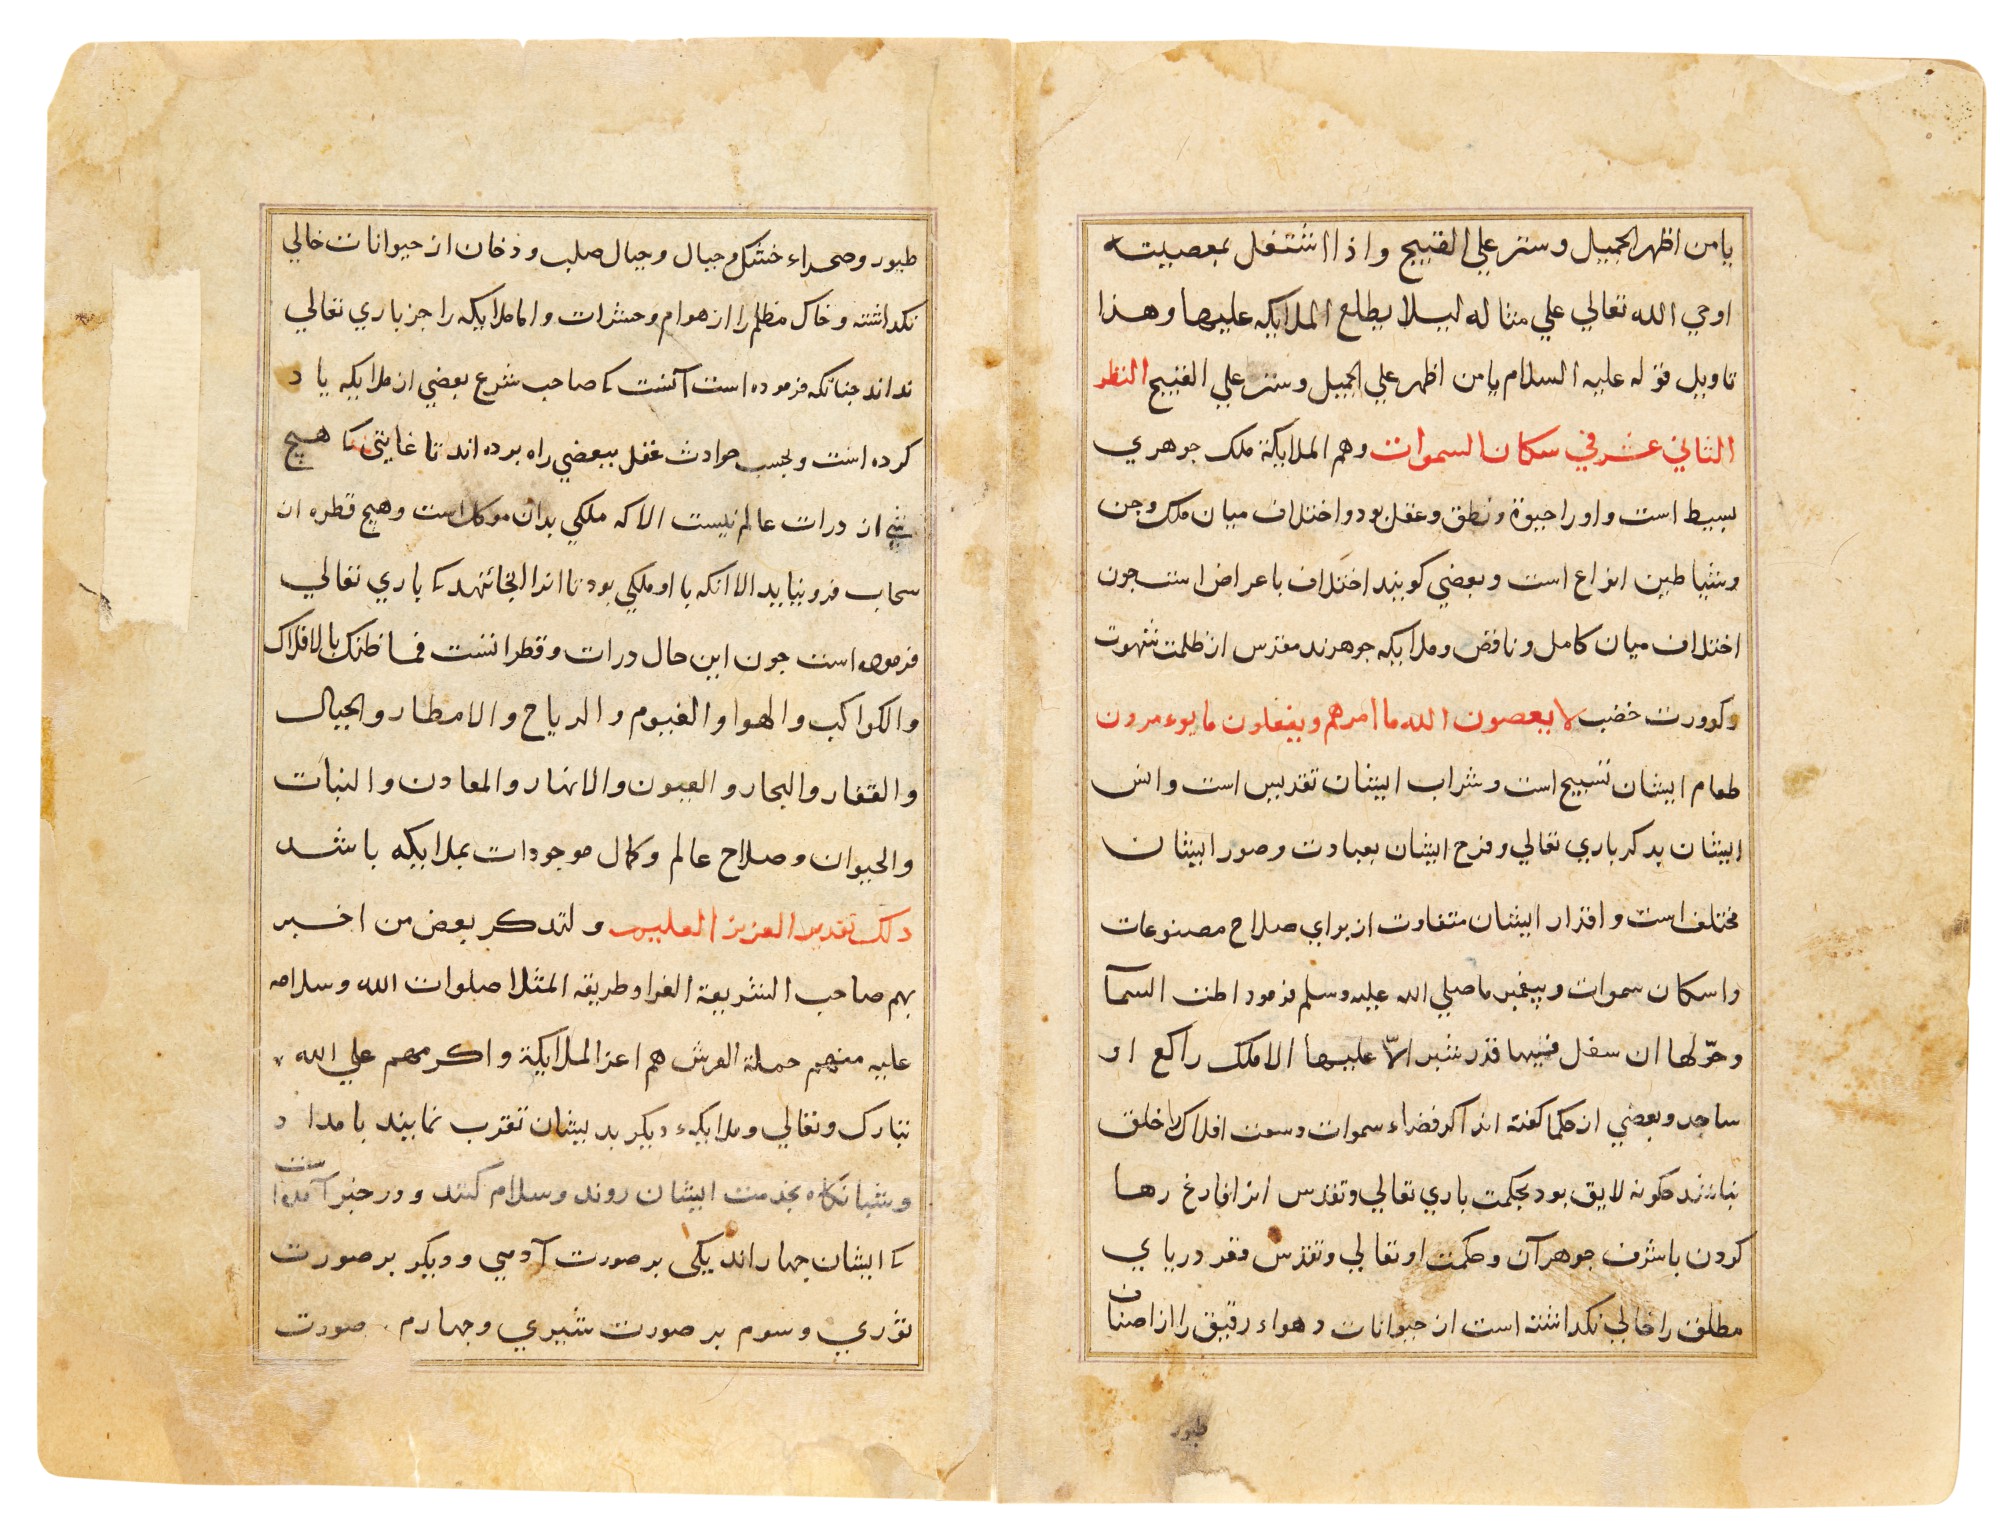 يا من اظهر الجميل وستر علي القبيح واذا اشتغل بمعصيته
اوحي الله تعالي علي مثاله ليلا يطلع الملايكه عليها وهذا
تاويل قوله عليه السلام يا من اظهر علي الجميل وستر علي القبيح النظر
الثاني عشر في سكان السموات وهم الملايكة ملك جوهري
بسيط است واورا حيوة ونطق وعقل بود واختلاف ميان ملك وجن
وشياطين انواع است وبعضي كويند اختلاف باعراض است جون
اختلاف ميان كامل وناقص وملايكه جوهرند مقدس از ظلمت شهوت
وكدورت غضب لا يعصون الله ما امرهم ويفعلون ما يوءمرون
طعام ايشان تسبيح است وشراب ايشان تقديس است وانس
ايشان بذكر باري تعالي وفرح ايشان بعبادت وصور ايشان
مختلف است واقدار ايشان متفاوت از براي صلاح مصنوعات
واسكان سموات وپيغمبر ما صلي الله عليه وسلم فرمود اطت السمآ
وحق لها ان سفل فيها قدر شبر الا عليها الا ملك راكع او
ساجد وبعضي از حكما كفته اند اكر فضاء سموات وسعت افلاك را خلق
نباشد چكونه لايق بود بحكمت باري تعالي وتقدس انرا فارغ رها
كردن با شرف جوهر آن وحكمت او تعالي وتقدس قعر درياي
مطلق را خالي نكداشته است از حيوانات وهواء رقيق را از اصناف
طيور
طيور وصحراء خشك وجبال وجبال صلب ودخان از حيوانات خالي
نكداشته وخاك مظلم را از هوام وحشرات واما ملايكه را جز باري تعالي
نداند جنانكه فرموده است آنست كه صاحب شرع بعضي از ملايكه ياد
كرده است وبحسب حوادث عقل ببعضي راه برده اند تا غايتي كا هيچ
شي از درات عالم نيست الا كه ملكي بدان موكل است وهيچ قطره از
سحاب فرو نيايد الا انكه با او ملكي بود تا انرا انجا نهد كه باري تعالي
فرموده است جون اين حال درات وقطراتست فما ظنك بالافلاك
والكواكب والهوا والغيوم والرياح والامطار والجبال
والقفار والبحار والعيون والانهار والمعادن والنبات
والحيوان وصلاح عالم وكمال موجودات بملايكه باشد
دلك تقدير العزيز العليم ولندكر بعض من اخبر
بهم صاحب الشريعة الغرا وطريقه المثلا صلوات الله وسلامه
عليه منهم حملة العرش هم اعز الملايكة واكرمهم علي الله
تبارك وتعالي وملايكهء ديكر بديشان تقرب نمايند بامداد
وشبانكاه بخدمت ايشان روند وسلام كنند ودر خبر آمده است
كه ايشان جهار اند يكي بر صورت آدمي وديكر بر صورت
ثوري وسوم بر صورت شيري وجهارم صورت